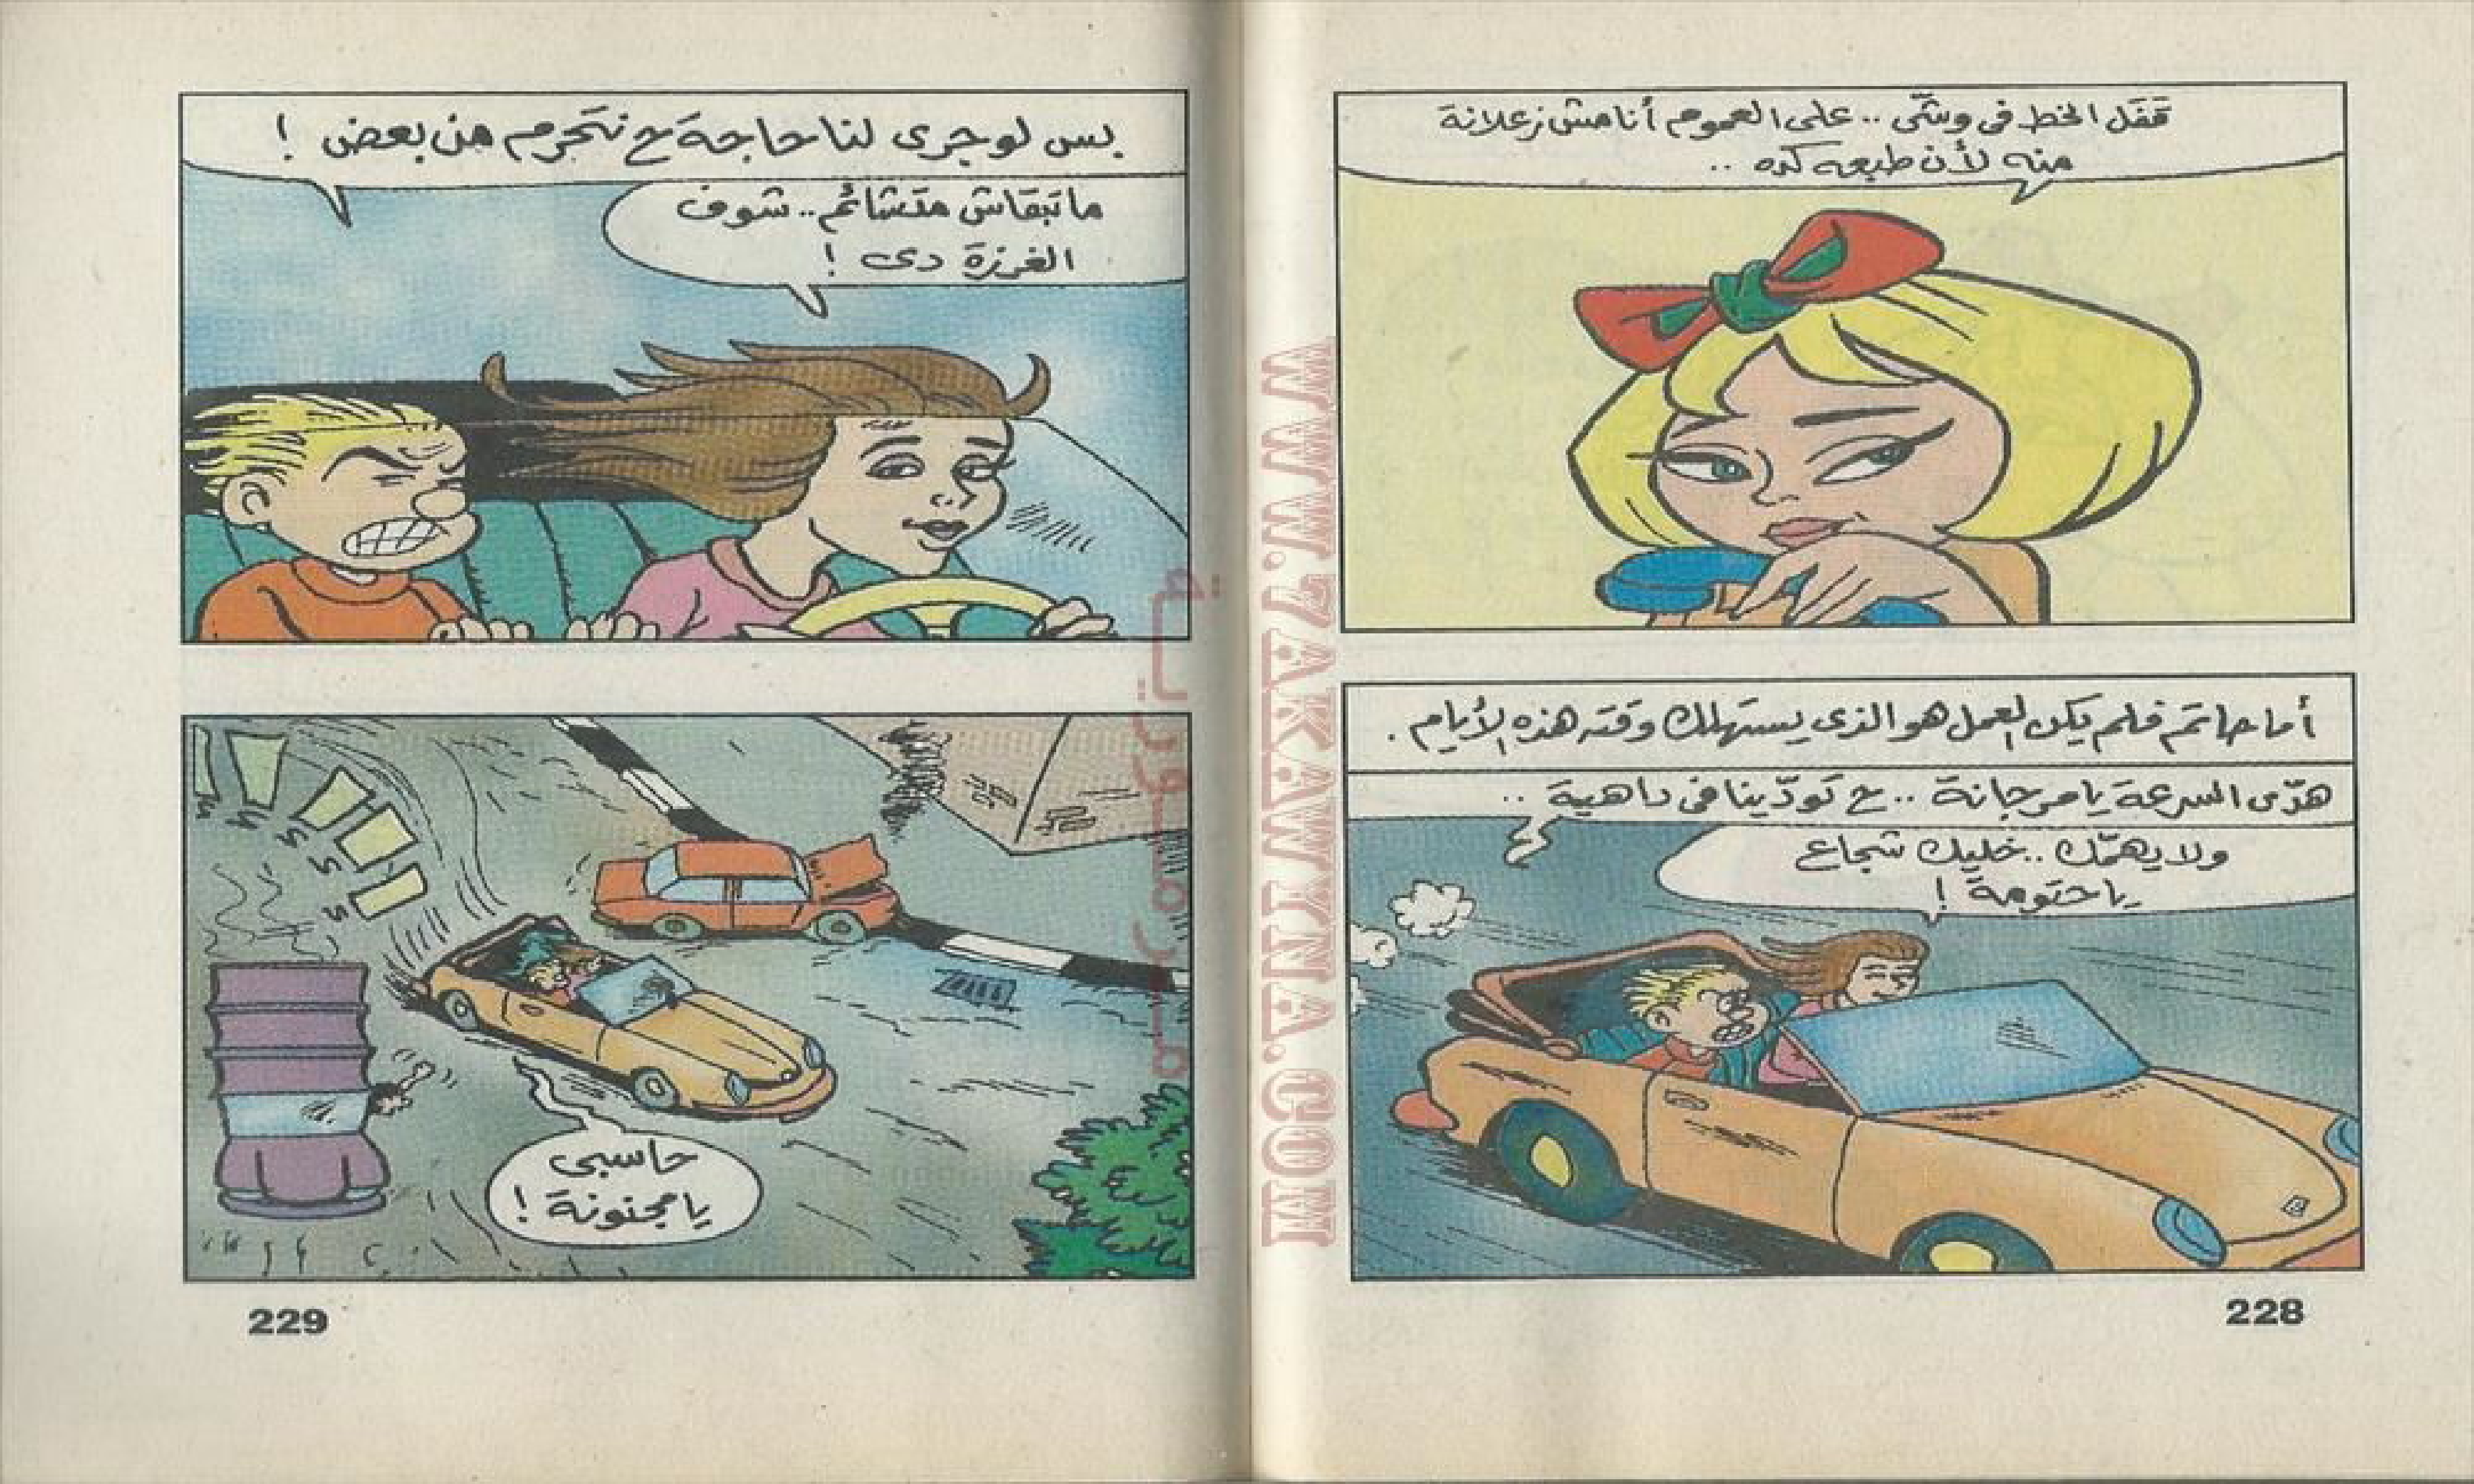 قفل الخط فى وشّى .. على العموم أنا مش زعلانة
منه لأن طبعه كده ..
أما حاتم فلم يكن العمل هو الذى يستهلك وقته هذه الأيام .
هدّى السرعة يا مرجانة .. ح تودّينا فى داهية ..
ولا يهمّك .. خليك شجاع
يا حتومة !
228
بس لو جرى لنا حاجة ح نتحرم من بعض !
ما تبقاش متشائم .. شوف
الغرزة دى !
حاسبى
يا مجنونة !
229
WWW.7AKAWINA.COM